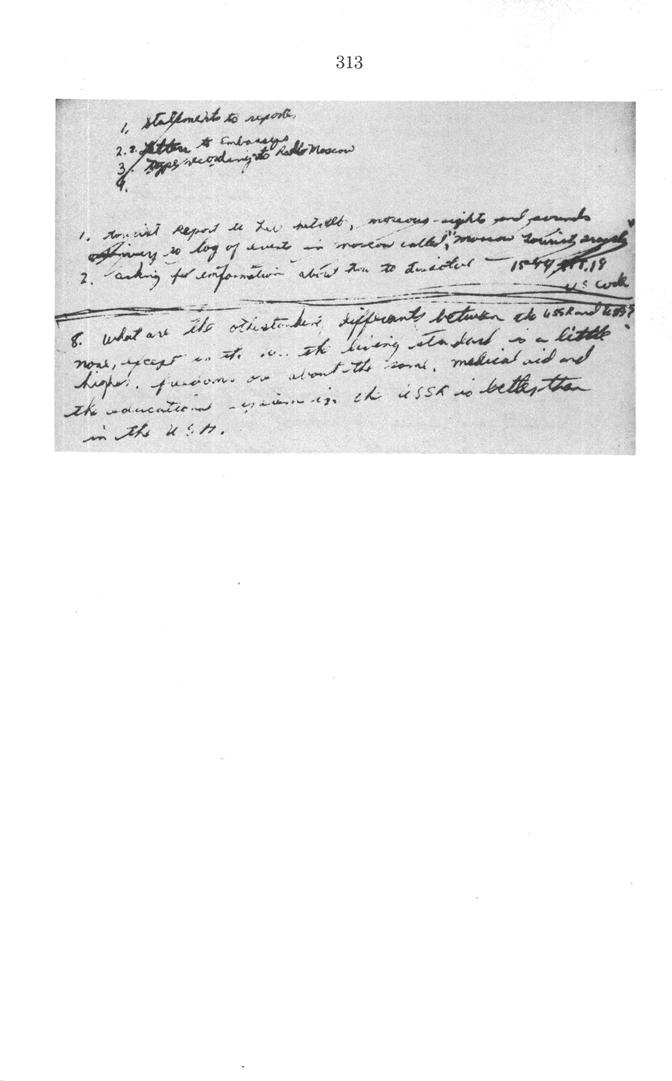 313
1. Statments to reporter
2. 2. letter to Embassys
3. Type recording to Radio Moscow
4.
1. tourist Report to moscous sights and sounds
to log of events in moscow called, "Moscow tourist
2. asking for imformation about how to 18
US Code
8. What are the outstanding differants between the USSR and USA?
none, except in the the living standard is a little
higher, freedoms are about the same, medical aid and
the educational system in the USSR is better than
in the USA.